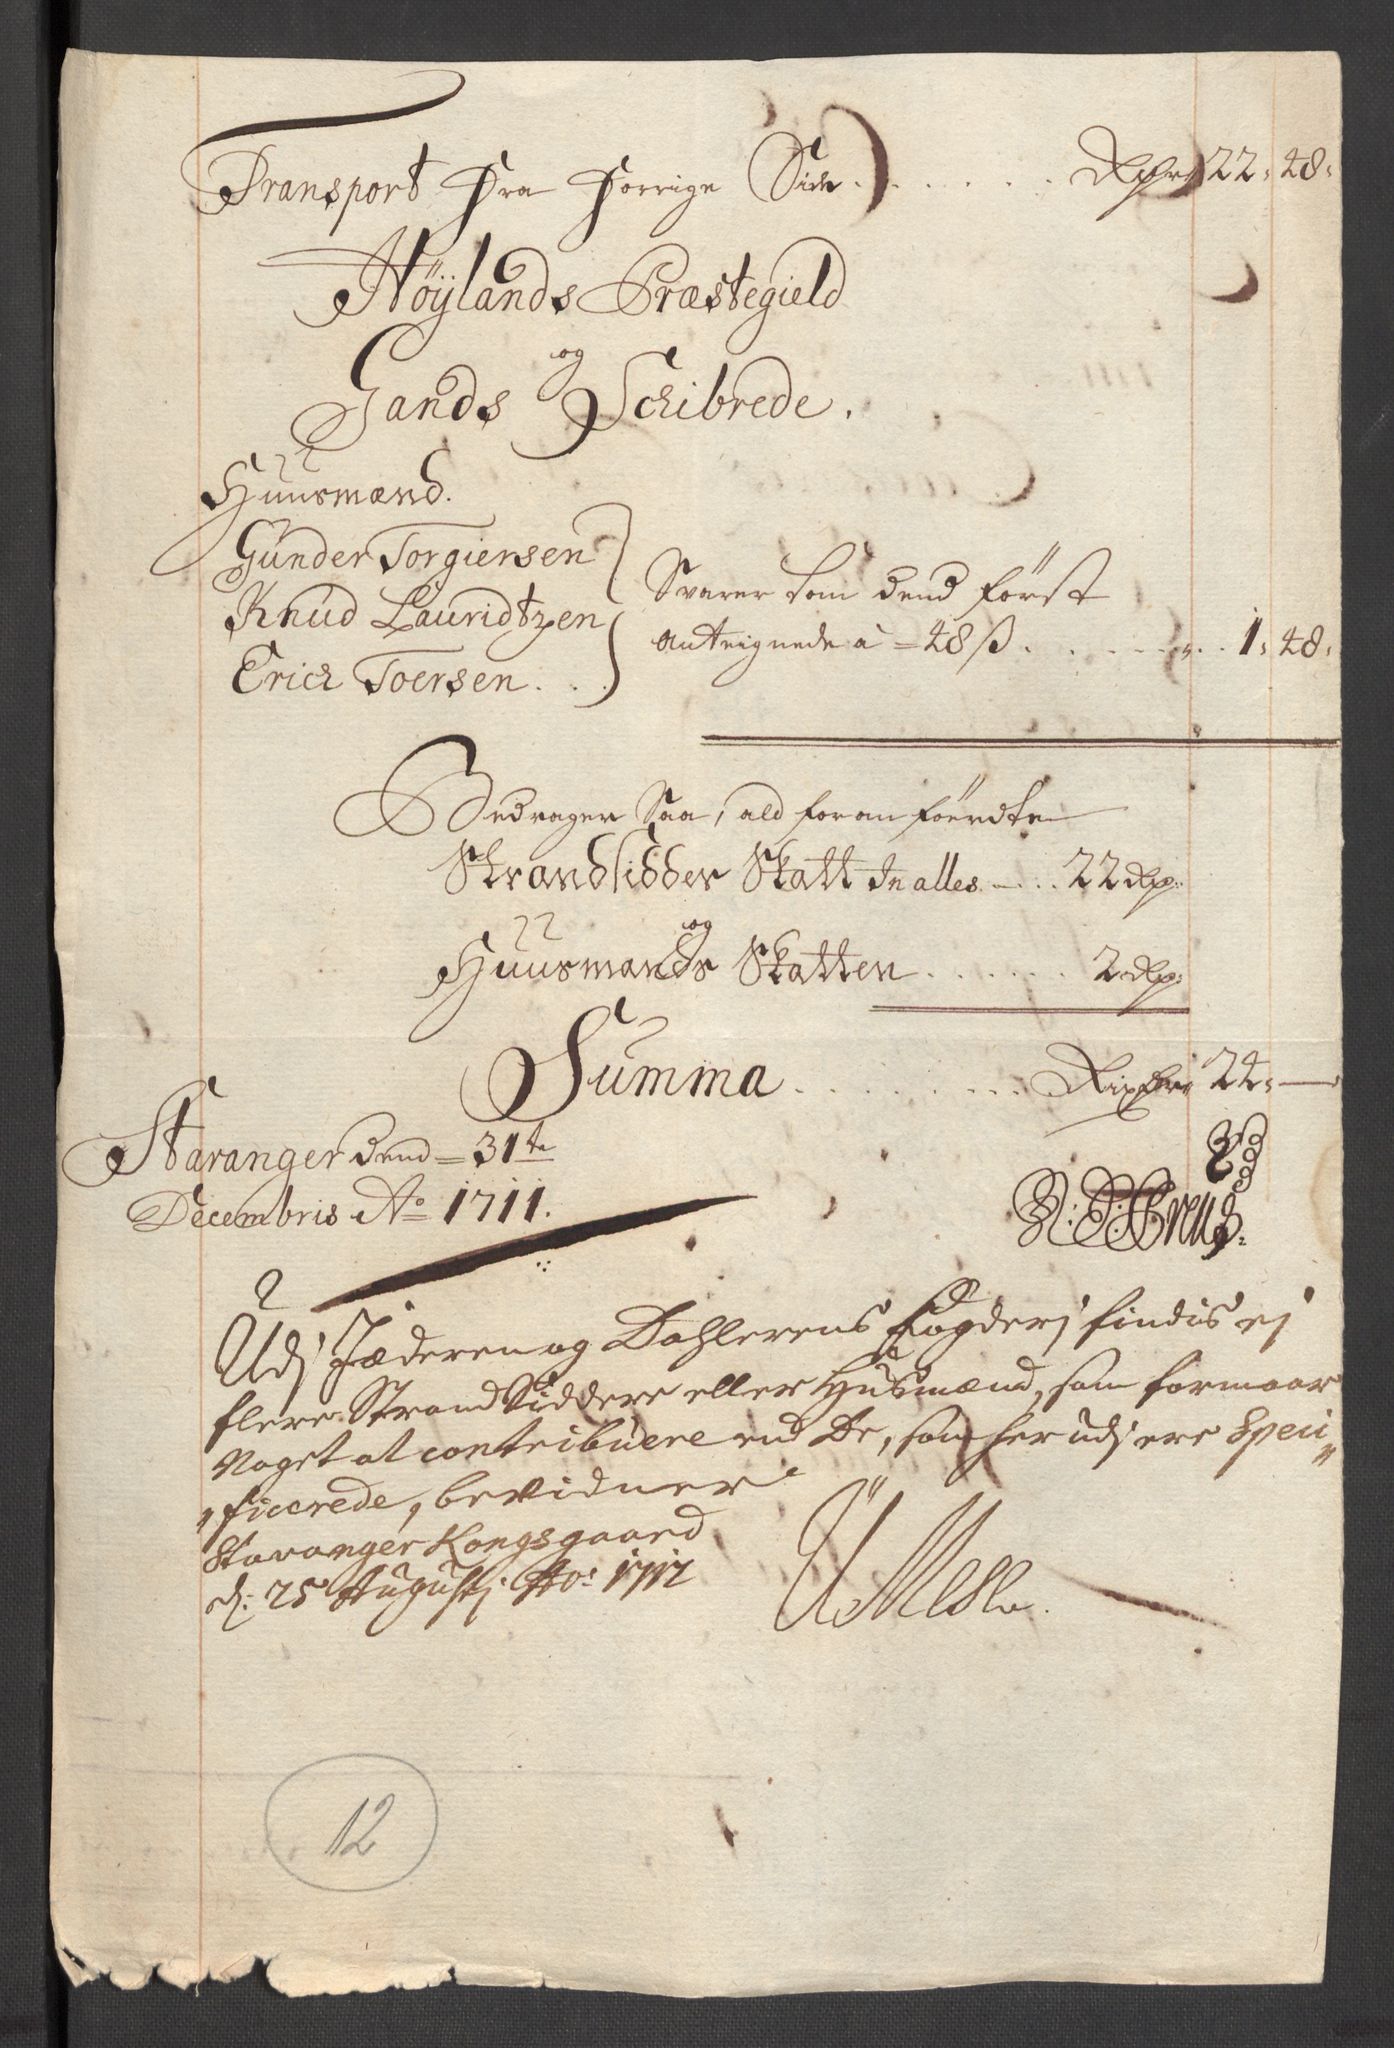 Transport fra forrige Side . . . . . . Rdr 22. 48.
Höylands Præstegield
og
Gands Schibrede.
Huusmænd.
Gunder Torgiersen
Knud Lauridtzen
Erich Toersen . . .
Svarer som dend först
anteignede a 48 ß . . . . . . 1. 48.
Bedrager Saa, ald foranföerdte
Strandsidder Skatt In alles . . . 22 Rdr
og
Huusmands Skatten . . . . . . 2 Rdr
Summa . . . . . . . . 24.
Stavanger dend 31te
Decembris Ao 1711.
Udj Jæderen og Dahlerens Fogderj findis ej
flere Strand Siddere eller Husmænd, som formaar
Noget at contribuere end De, som her udj ere Speci
ficerede, bevidner
Stavanger Kongsgaard
d: 25 Augustj Ao: 1712
12